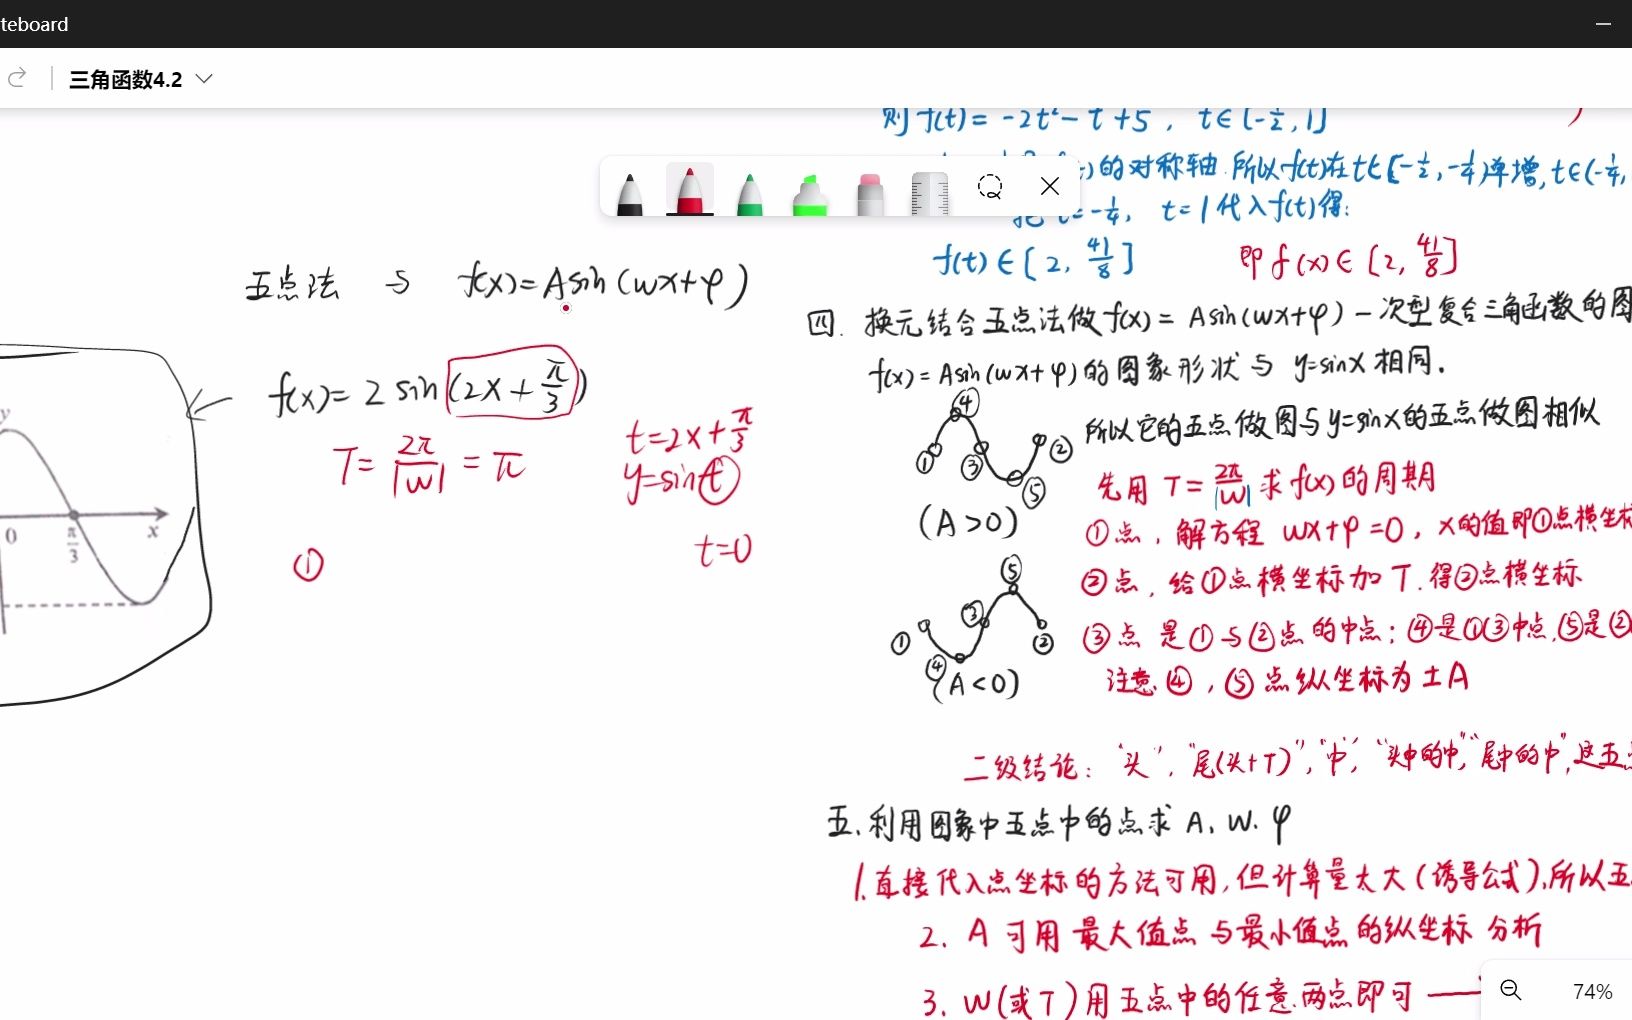 teboard
三角函数4.2
则 f(t) = -2t² - t + 5 , t∈[-1/2, 1]
的对称轴.所以f(t)在t∈[-1/2, -1/4)单增, t∈(-1/4,
把 t=-1/4, t=1代入f(t)得:
f(t)∈[2, 41/8] 即 f(x)∈[2, 41/8]
五点法 与 f(x)=Asin(wx+φ)
f(x)= 2 sin(2x+π/3)
T= 2π/|w| = π
t=2x+π/3
y=sint
t=0
①
y
0
π/3
x
四. 换元结合五点法做f(x) = Asin(wx+φ)一次型复合三角函数的图
f(x)=Asin(wx+φ)的图象形状与 y=sinx相同.
所以它的五点做图与y=sinx的五点做图相似
① ④ ③ ⑤ ②
(A>0)
先用 T= 2π/|w| 求f(x)的周期
①点, 解方程 wx+φ=0, x的值即①点横坐标
②点, 给①点横坐标加T.得②点横坐标
① ④ ③ ⑤ ②
(A<0)
③点 是①与②点的中点; ④是①③中点,⑤是②
注意④, ⑤点纵坐标为±A
二级结论: "头", "尾(头+T)", "中", "头中的中", "尾中的中",这五
五.利用图象中五点中的点求 A. w. φ
1.直接代入点坐标的方法可用,但计算量太大(诱导公式),所以五
2. A 可用 最大值点 与最小值点的纵坐标 分析
3. W(或T)用五点中的任意两点即可
74%